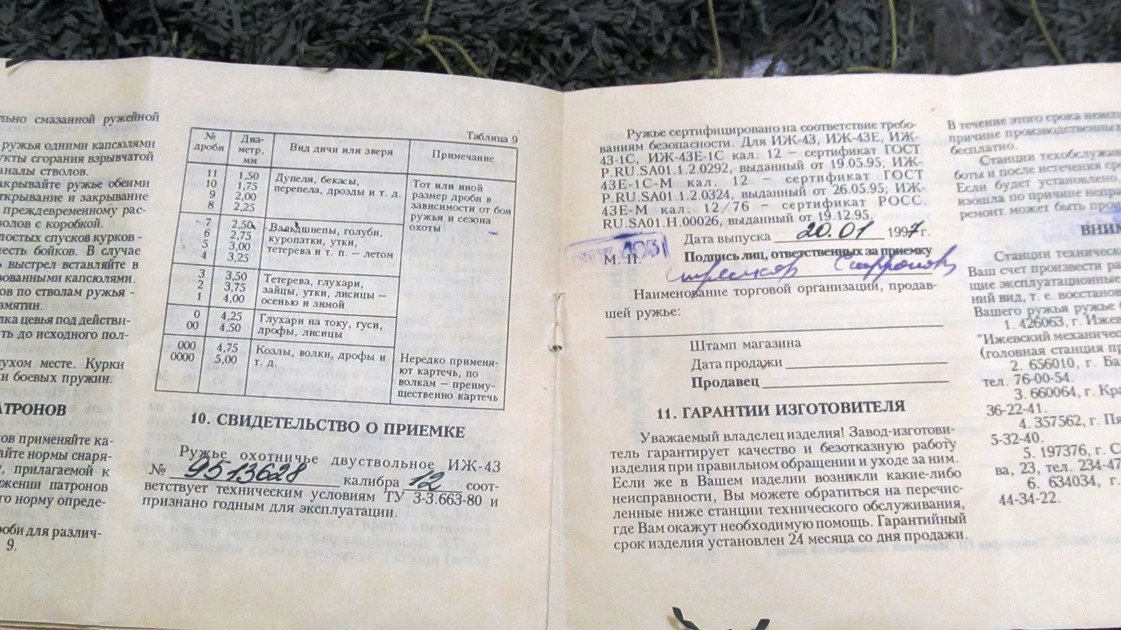 льно смазанной ружейной
ружья одними капсюлями
укты сгорания взрывчатой
аналы стволов.
акрывайте ружье обеими
ткрывание и закрывание
преждевременному рас-
волов с коробкой.
лостых спусков курков -
месть бойков. В случае
выстрел вставляйте в
зованными капсюлями.
ов по стволам ружья -
змятин.
лка цевья под действи-
ть до исходного пол-
ухом месте. Курки
и боевых пружин.
АТРОНОВ
ов применяйте ка-
айте нормы снаря-
, прилагаемой к
жении патронов
го норму опреде-
роби для различ-
9.
Таблица 9
№ дроби
Диа-метр, мм
Вид дичи или зверя
Примечание
11 1,50
10 1,75
9 2,00
8 2,25
Дупеля, бекасы,
перепела, дрозды и т. д.
7 2,50
6 2,75
5 3,00
4 3,25
Вальдшнепы, голуби,
куропатки, утки,
тетерева и т. п. – летом
3 3,50
2 3,75
1 4,00
Тетерева, глухари,
зайцы, утки, лисицы –
осенью и зимой
0 4,25
00 4,50
Глухари на току, гуси,
дрофы, лисицы
000 4,75
0000 5,00
Козлы, волки, дрофы и
т. д.
Тот или иной
размер дроби в
зависимости от боя
ружья и сезона
охоты
Нередко применя-
ют картечь, по
волкам – преиму-
щественно картечь
10. СВИДЕТЕЛЬСТВО О ПРИЕМКЕ
Ружье охотничье двуствольное ИЖ-43
№ 9513628 калибра 12 соот-
ветствует техническим условиям ТУ 3-3.663-80 и
признано годным для эксплуатации.
Ружье сертифицировано на соответствие требо-
ваниям безопасности. Для ИЖ-43, ИЖ-43Е, ИЖ-
43-1С, ИЖ-43Е-1С кал. 12 – сертификат ГОСТ
Р.RU.SA01.1.2.0292, выданный от 19.05.95; ИЖ-
43Е-1С-М кал. 12 – сертификат ГОСТ
Р.RU.SA01.1.2.0324, выданный от 26.05.95; ИЖ-
43Е-М кал. 12/76 – сертификат РОСС.
RU.SA01.Н.00026, выданный от 19.12.95.
Дата выпуска 20.01 1997г.
М. П. Подпись лиц, ответственных за приемку
Наименование торговой организации, продав-
шей ружье:
Штамп магазина
Дата продажи
Продавец
11. ГАРАНТИИ ИЗГОТОВИТЕЛЯ
Уважаемый владелец изделия! Завод-изготови-
тель гарантирует качество и безотказную работу
изделия при правильном обращении и уходе за ним.
Если же в Вашем изделии возникли какие-либо
неисправности, Вы можете обратиться на перечис-
ленные ниже станции технического обслуживания,
где Вам окажут необходимую помощь. Гарантийный
срок изделия установлен 24 месяца со дня продажи.
В течение этого срока неисп
причине производственных
бесплатно.
Станции техобслужив
боты и после истечения сро
Если будет установлено,
изошла по причине непра
ремонт может быть прои
ВНИМ
Станции техническо
Ваш счет произвести ра
щие эксплуатационные
ний вид, т. е. восстанов
Вашего ружья ружье б
1. 426063, г. Ижев
"Ижевский механичес
(головная станция пр
2. 656010, г. Ба
тел. 76-00-54.
3. 660064, г. Кра
36-22-41.
4. 357562, г. Пя
5-32-40.
5. 197376, г. С
ва, 23, тел. 234-47
6. 634034, г.
44-34-22.